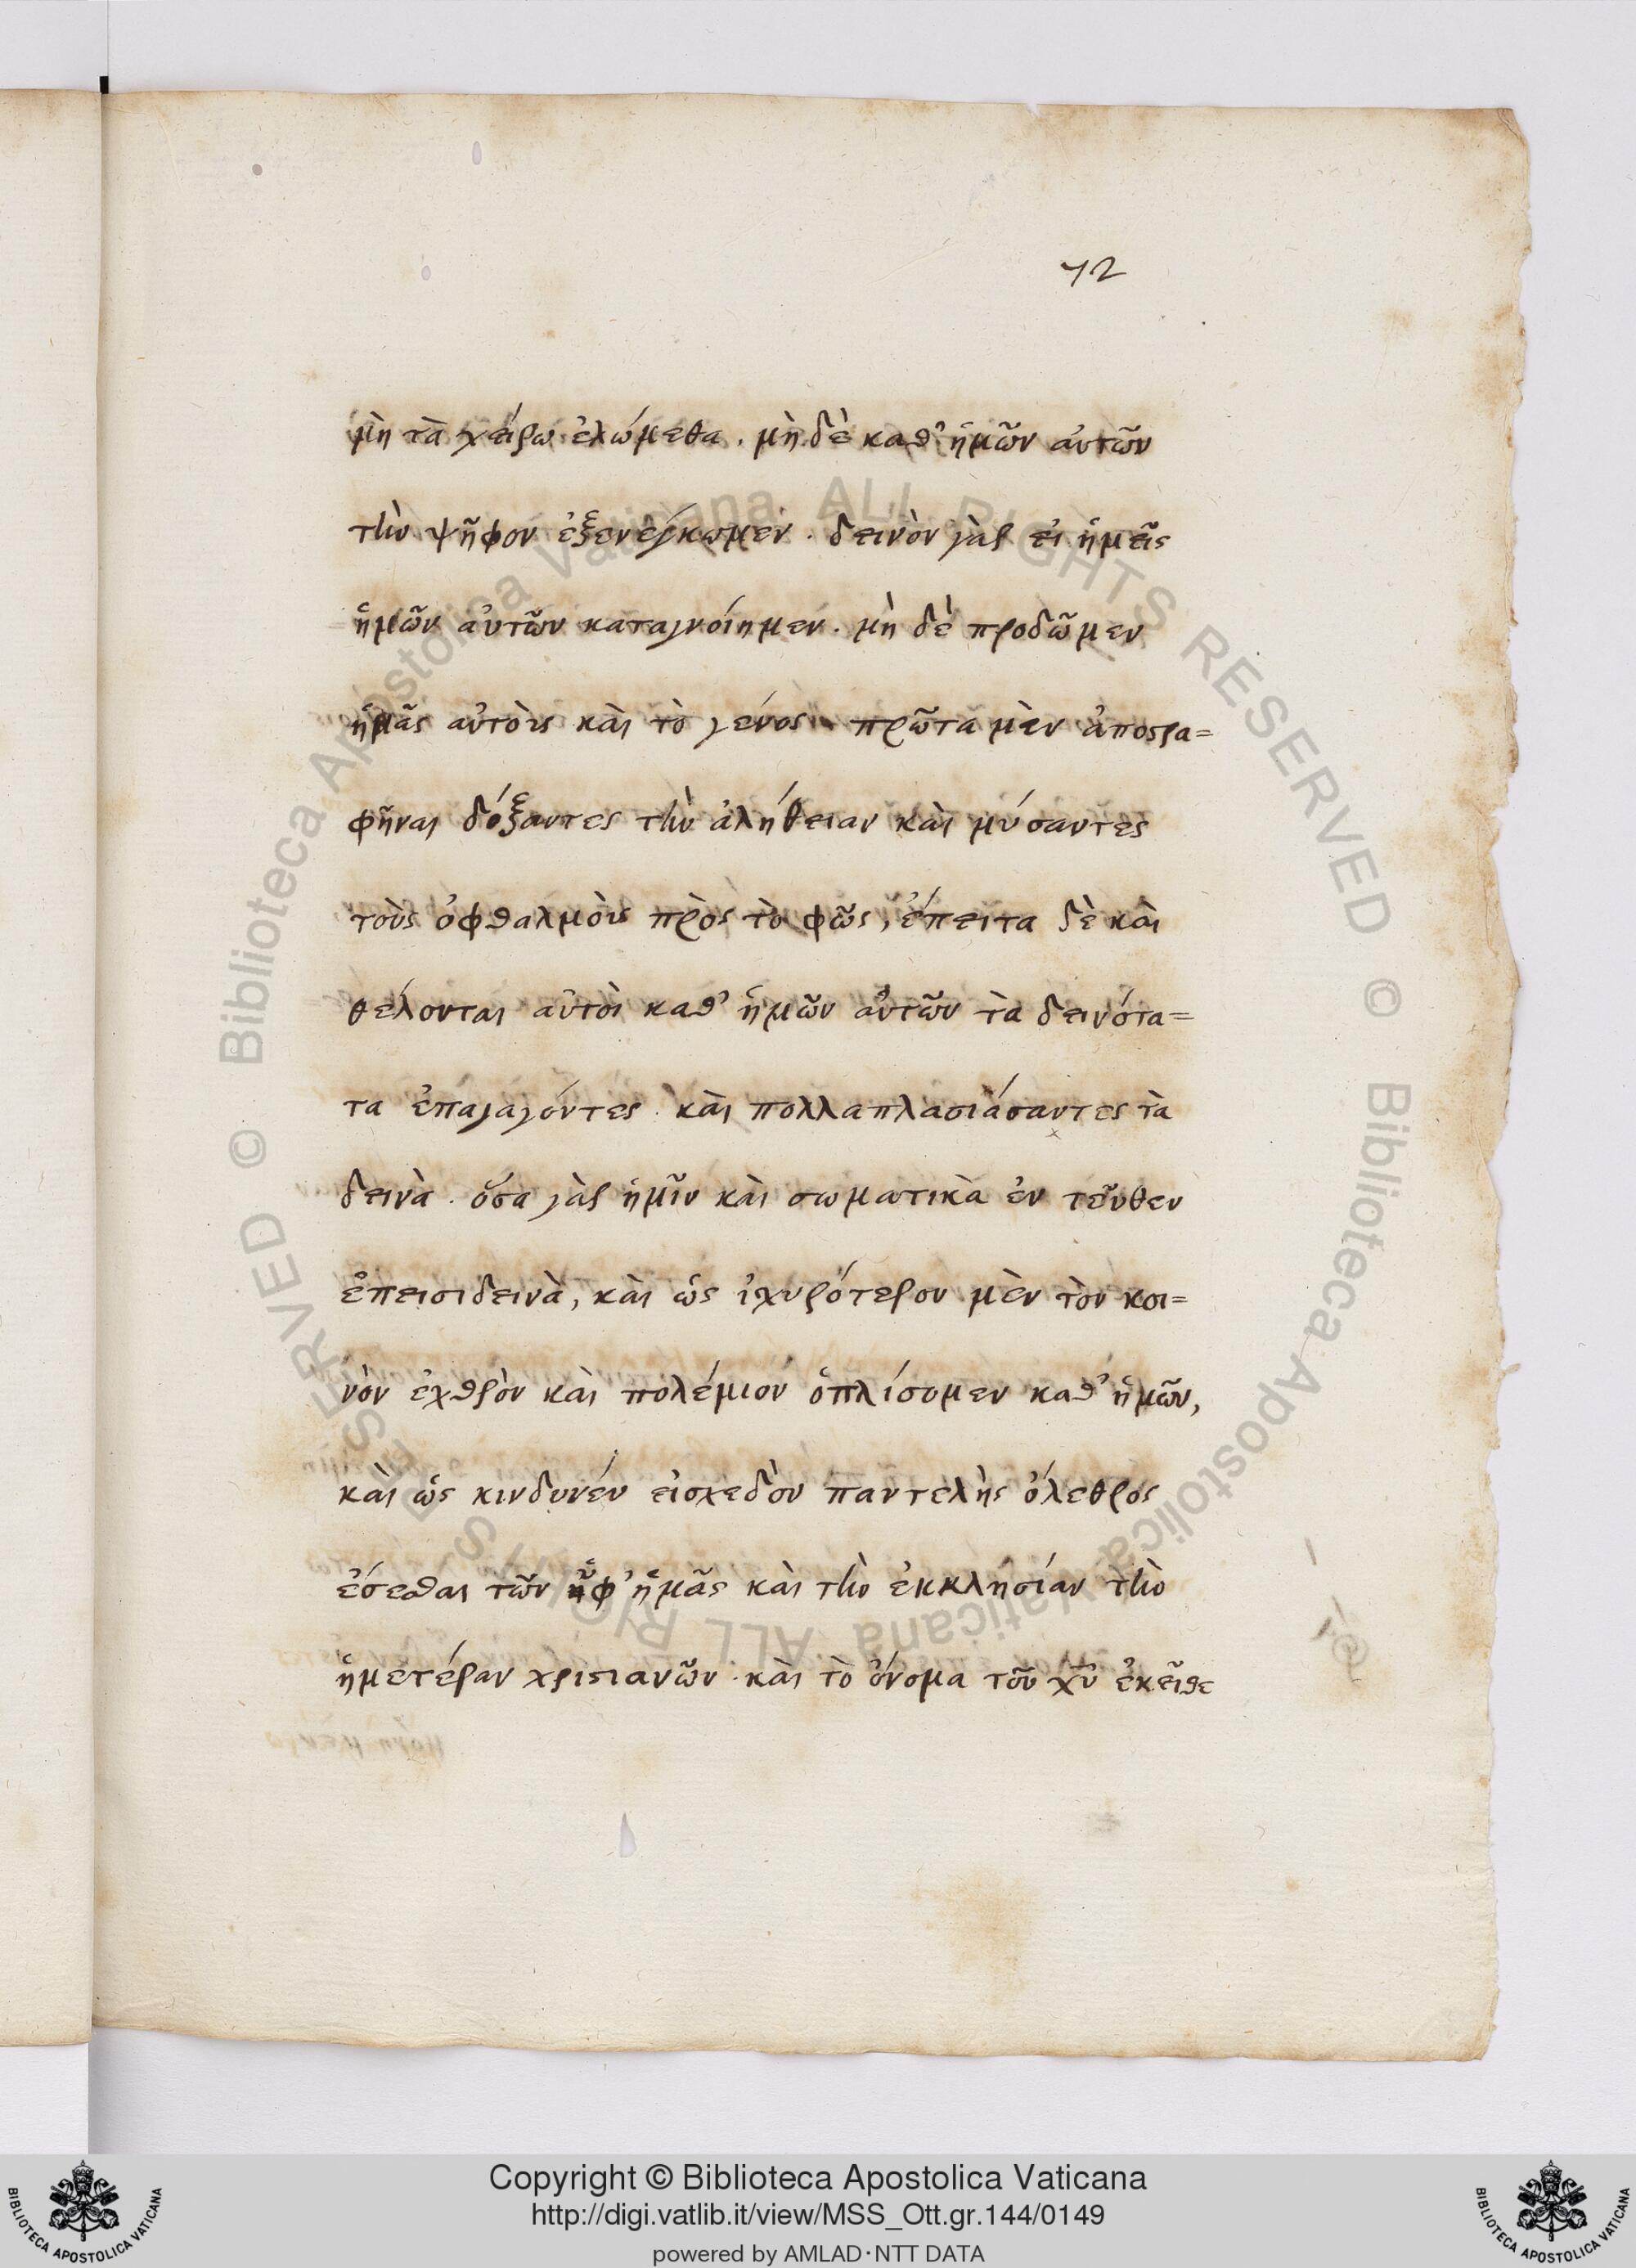 72
μὴ τὰ χείρω ἑλώμεθα. μὴ δὲ καθ' ἡμῶν αὐτῶν
τὴν ψῆφον ἐξενέγκωμεν. δεινὸν γὰρ εἰ ἡμεῖς
ἡμῶν αὐτῶν καταγνοίημεν. μὴ δὲ προδῶμεν
ἡμᾶς αὐτοὺς καὶ τὸ γένος πρῶτα μὲν ἀποστρα=
φῆναι δόξαντες τὴν ἀλήθειαν καὶ μύσαντες
τοὺς ὀφθαλμοὺς πρὸς τὸ φῶς, ἔπειτα δὲ καὶ
θέλονται αὐτοὶ καθ' ἡμῶν αὐτῶν τὰ δεινότα=
τα ἐπαγαγόντες καὶ πολλαπλασιάσαντες τὰ
δεινὰ. ὅσα γὰρ ἡμῖν καὶ σωματικὰ ἐν τεῦθεν
ἔπεισι δεινὰ, καὶ ὡς ἰχυρότερον μὲν τὸν κοι=
νὸν ἐχθρὸν καὶ πολέμιον ὁπλίσομεν καθ' ἡμῶν,
καὶ ὡς κινδυνέυ εισχεδὸν παντελὴς ὄλεθρος
ἔσεσθαι τῶν ἐφ' ἡμᾶς καὶ τὴν ἐκκλησίαν τὴν
ἡμετέραν χριστιανῶν. καὶ τὸ ὄνομα τοῦ χυ ἐκεῖθε
© Biblioteca Apostolica Vaticana ALL RIGHTS RESERVED © Biblioteca Apostolica Vaticana ALL RIGHTS RESERVED
Copyright © Biblioteca Apostolica Vaticana
http://digi.vatlib.it/view/MSS_Ott.gr.144/0149
powered by AMLAD·NTT DATA
BIBLIOTECA APOSTOLICA VATICANA
BIBLIOTECA APOSTOLICA VATICANA